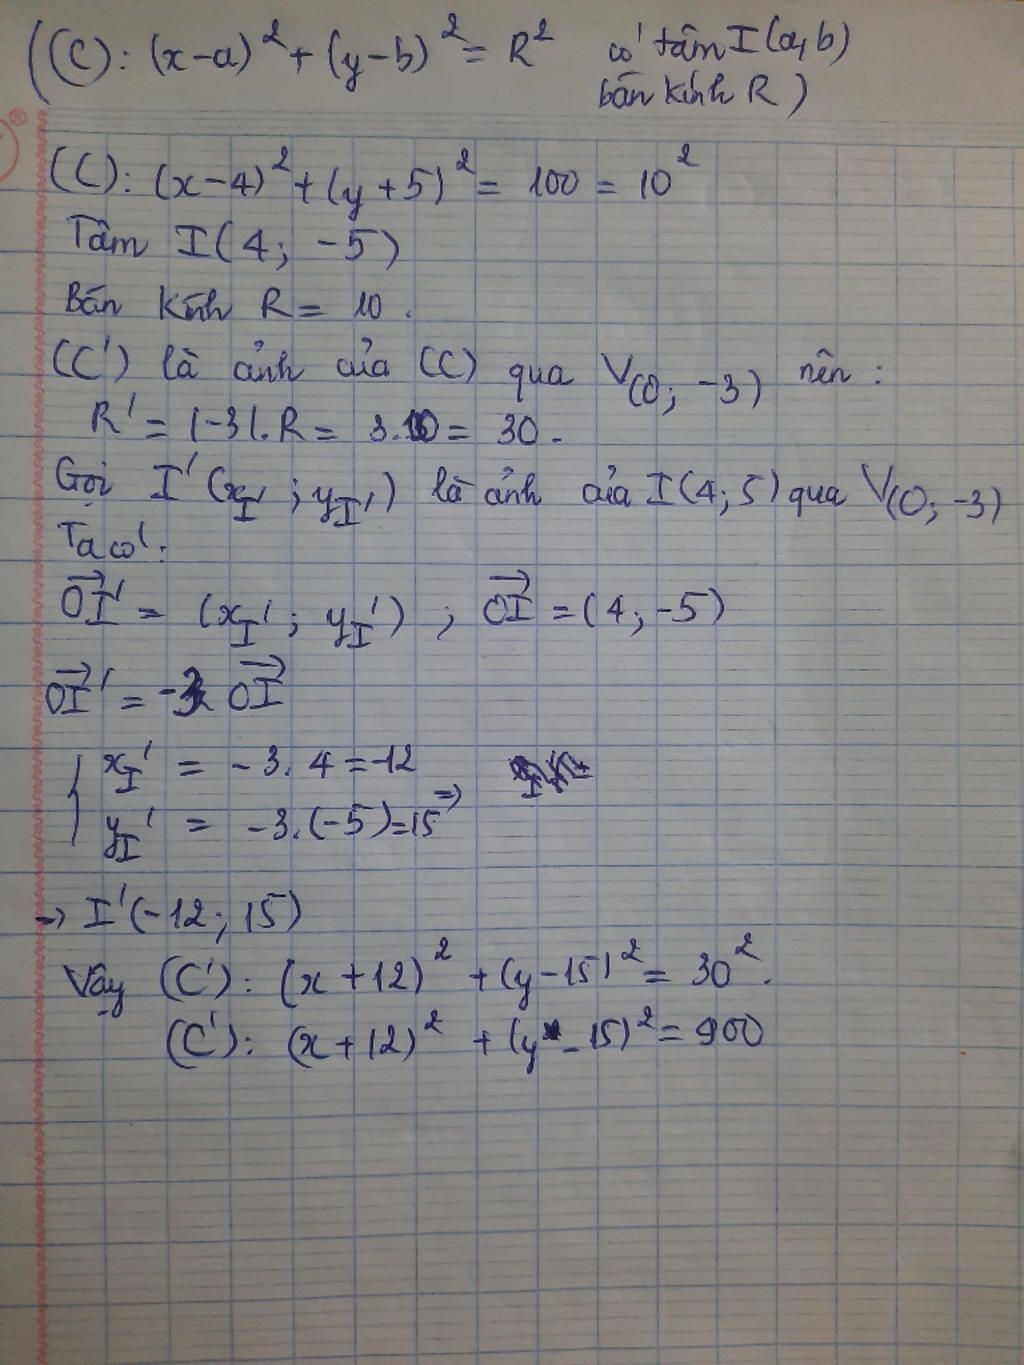 ((C): (x-a)² + (y-b)² = R² có tâm I(a,b)
bán kính R)
®
(C): (x-4)² + (y+5)² = 100 = 10²
Tâm I(4; -5)
Bán kính R = 10.
(C') là ảnh của (C) qua V(O; -3) nên:
R' = |-3|.R = 3.10 = 30.
Gọi I'(x_I'; y_I') là ảnh của I(4; 5) qua V(O; -3)
Ta có:
OI' = (x_I'; y_I'); OI = (4; -5)
OI' = -3 OI
x_I' = -3.4 = -12
y_I' = -3.(-5) = 15 ⇒
→ I'(-12; 15)
Vậy (C'): (x+12)² + (y-15)² = 30².
(C'): (x+12)² + (y-15)² = 900